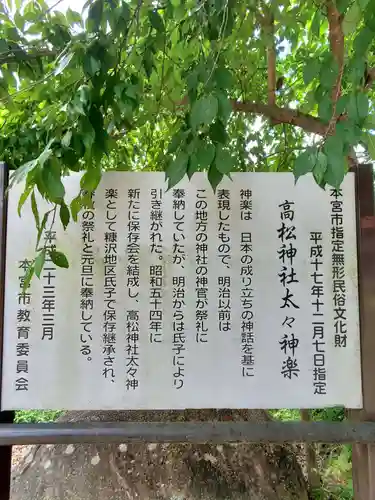 本宮市指定無形民俗文化財
高松神社太々神楽
平成十七年十二月七日指定
神楽は 日本の成り立ちの神話を基に
表現したもので、明治以前は
この地方の神社の神官が祭礼に
奉納していたが、明治からは氏子により
引き継がれた。昭和五十四年に
新たに保存会を結成し、高松神社太々神
楽として糠沢地区氏子で保存継承され、
の祭礼と元旦に奉納している。
平成二十三年三月
本宮市教育委員会